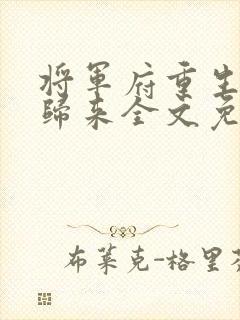 将軍府重生
歸来全文免
布莱克-格里芬